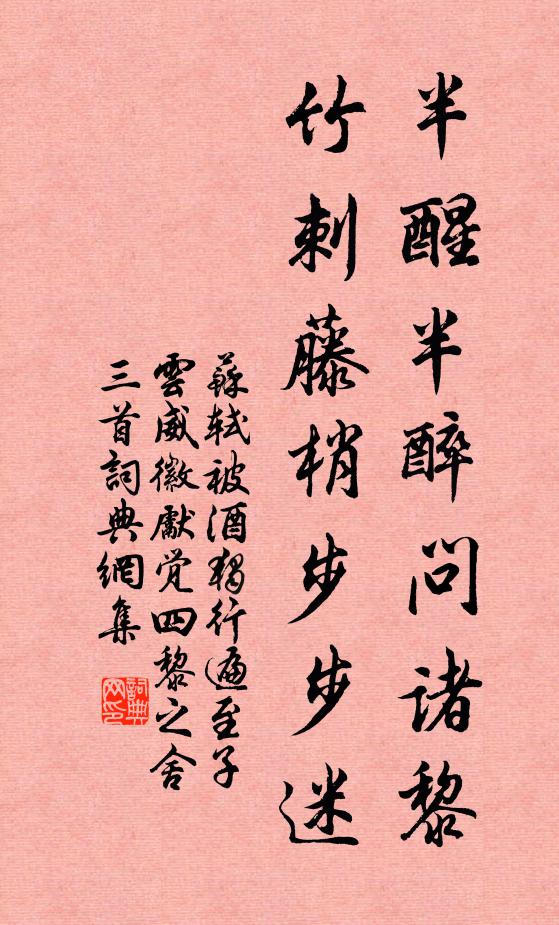 半醒半醉問諸黎
竹刺藤梢步步迷
蘇軾被酒獨行遍至子
雲威徽獻覚四黎之舍
三首詞典網集
詞典
网印